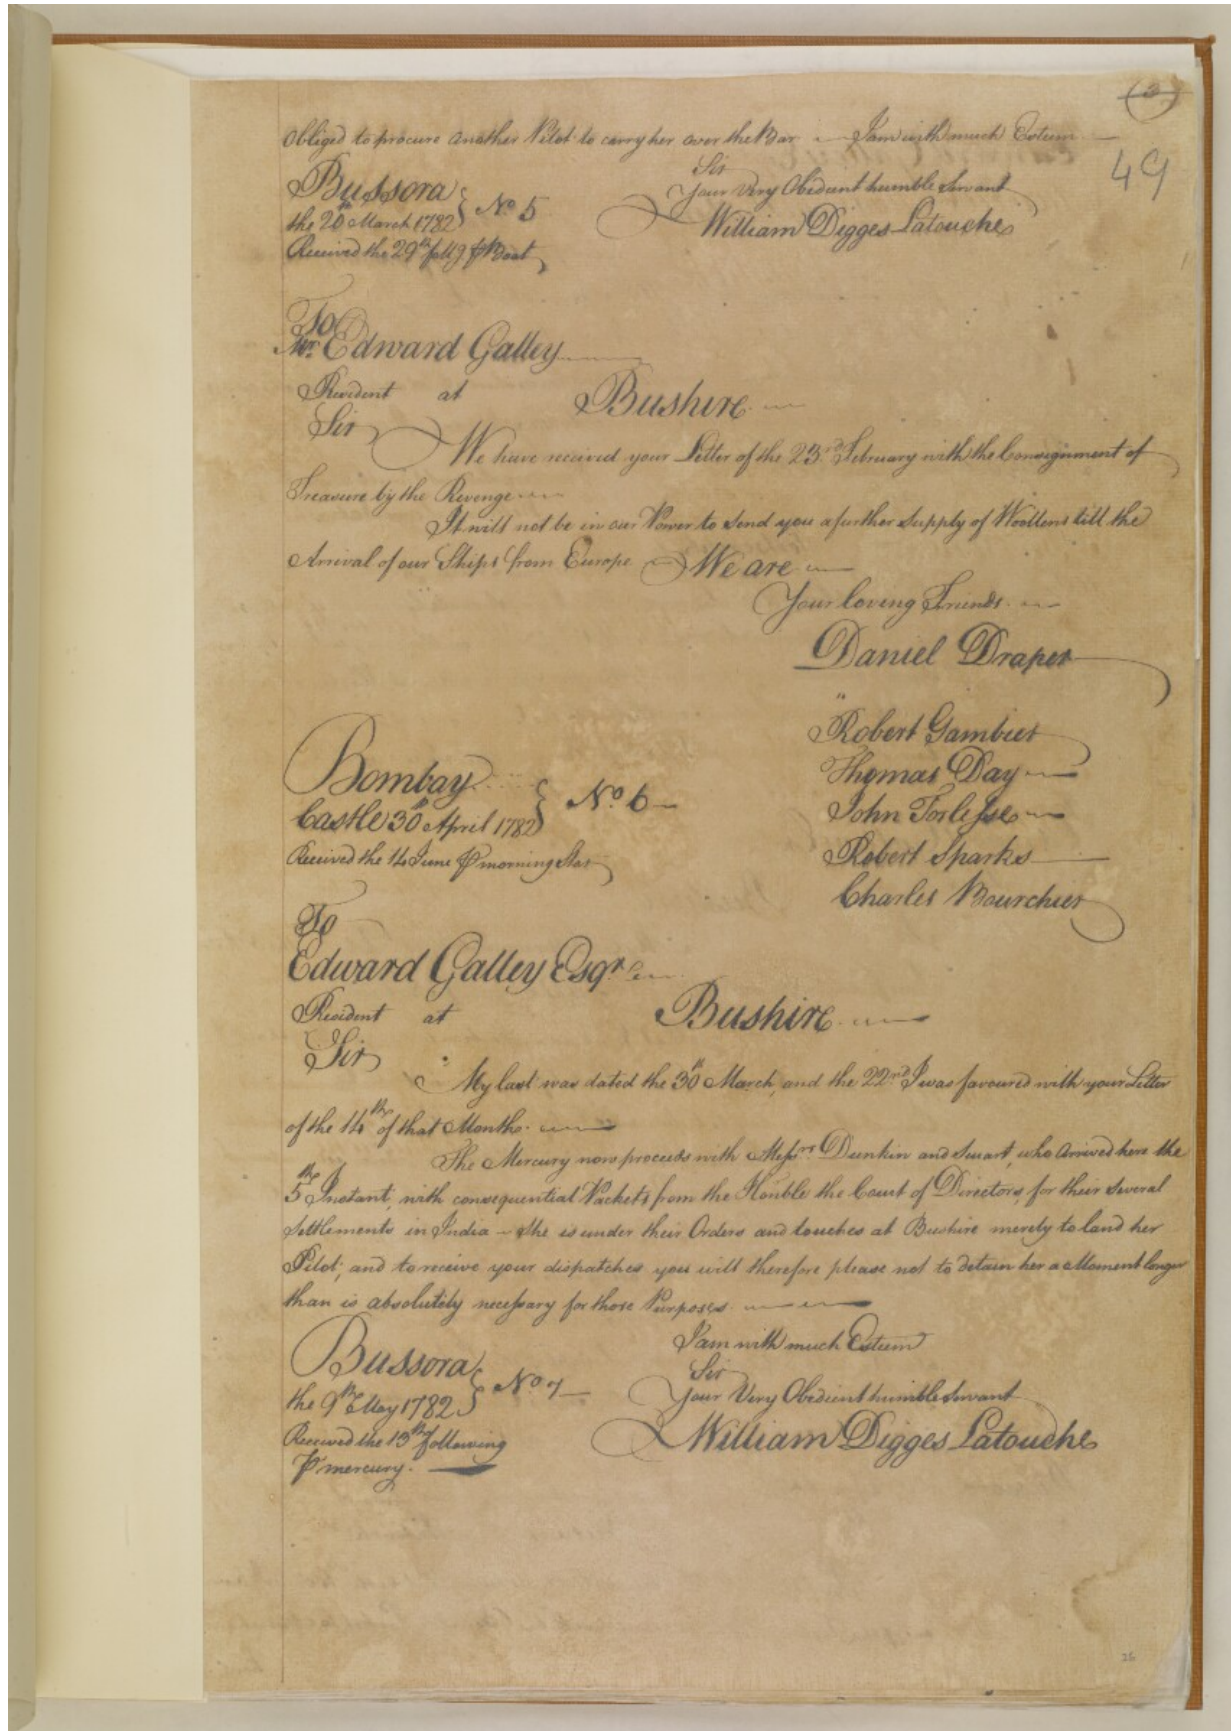 (3)
Obliged to procure another Pilot to carry her over the Bar I am with much Esteem
49
Sir
Your Very Obedient humble Servant
William Digges Latouche
Bussora
the 20th March 1782 } No. 5
Received the 29th follg ⅌ Boat
To
Mr. Edward Galley
Resident at Bushire
Sir
We have received your Letter of the 23rd. February with the Consignment of
Treasure by the Revenge
It will not be in our Power to send you a further Supply of Woollens till the
Arrival of our Ships from Europe We are
Your loving Friends
Daniel Draper
"
Robert Gambier
Thomas Day
John Torlesse
Robert Sparks
Charles Bourchier
Bombay
Castle 30th April 1782 } No. 6
Received the 14 June ⅌ morning Star
To
Edward Galley Esqr.
Resident at Bushire
Sir
My last was dated the 30th March, and the 22nd I was favoured with your Letter
of the 14th of that Month.
The Mercury now proceeds with Messrs. Dunkin and Smart, who Arrived here the
5th Instant, with consequential Packets from the Honble the Court of Directors, for their several
Settlements in India – She is under their Orders and touches at Bushire merely to land her
Pilot, and to receive your dispatches you will therefore please not to detain her a Moment longer
than is absolutely necessary for those Purposes
I am with much Esteem
Sir
Your Very Obedient humble Servant
William Digges Latouche
Bussora
the 9th May 1782 } No. 7
Received the 13th following
⅌ mercury.
26